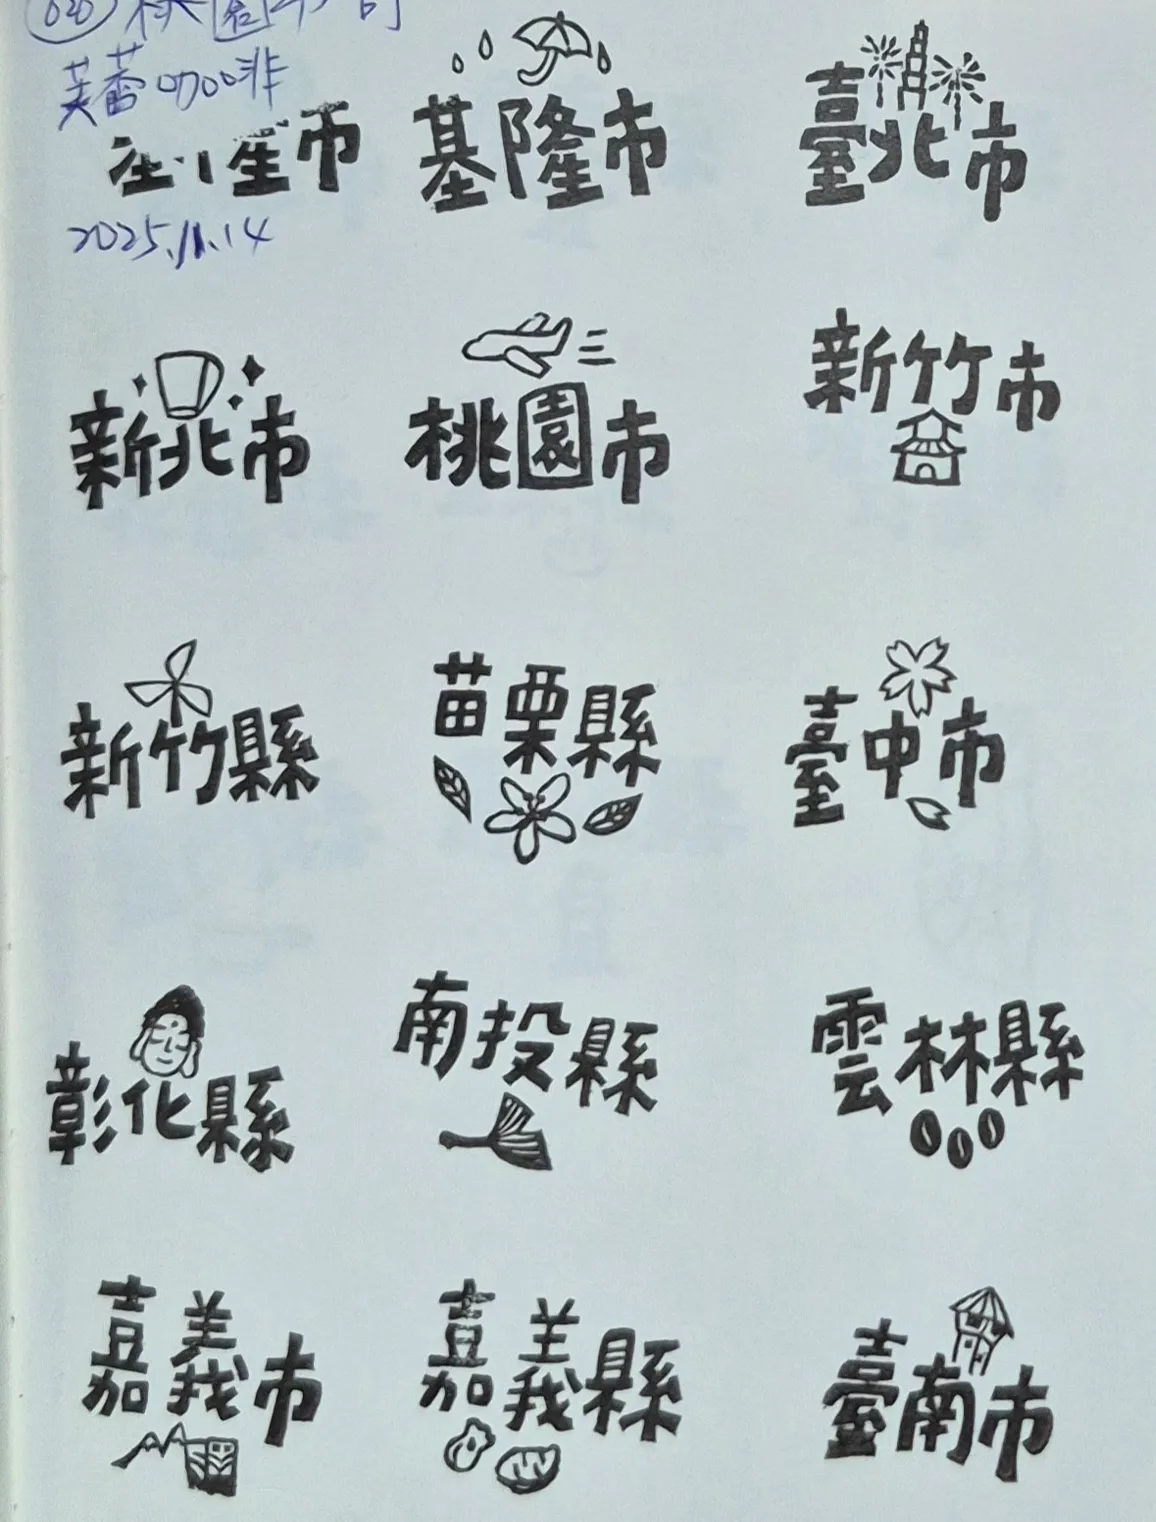 020 桃園市
芙蓉咖啡
隆市
2025.11.14
基隆市
臺北市
新北市
桃園市
新竹市
新竹縣
苗栗縣
臺中市
彰化縣
南投縣
雲林縣
嘉義市
嘉義縣
臺南市